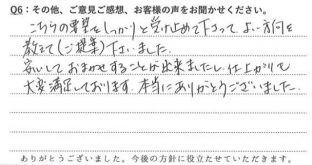 Q6：その他、ご意見ご感想、お客様の声をお聞かせください。
こちらの要望をしっかりと受け止めて下さって よい方向を
教えて(ご提案)下さいました。
安心しておまかせすることが出来ましたし、仕上がりも
大変満足しております。本当にありがとうございました。
ありがとうございました。今後の方針に役立たせていただきます。